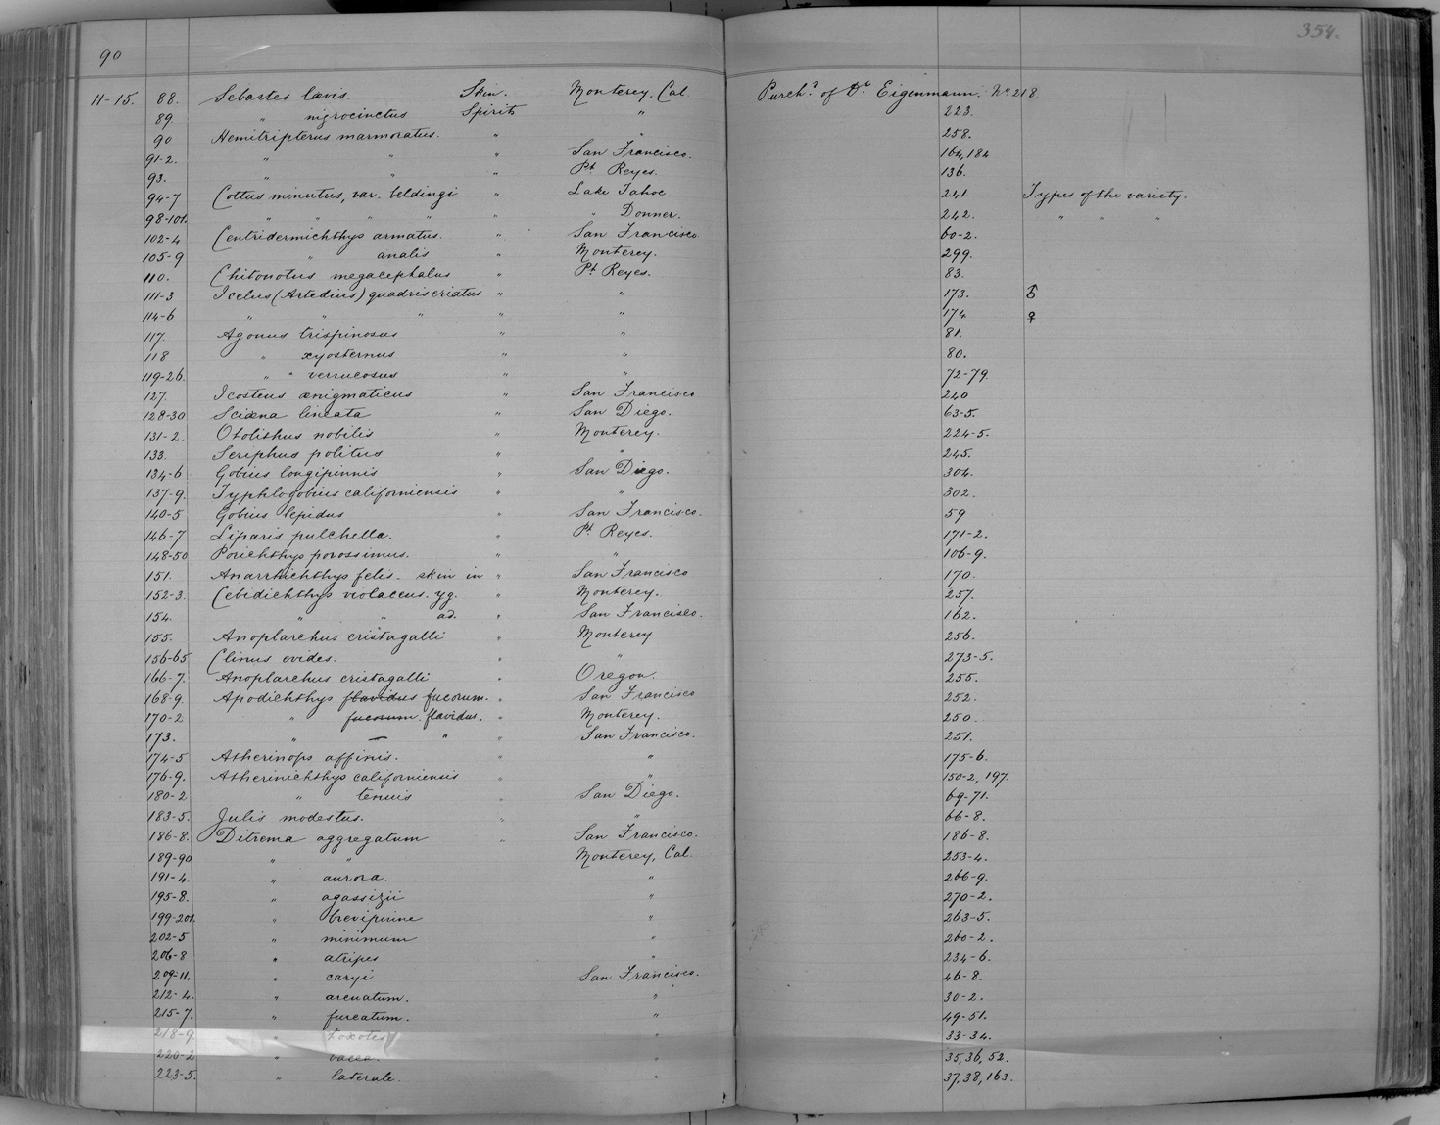 90
354.
11-15. 88. Sebastes lævis. Skin. Monterey, Cal. Purchd. of Dr Eigenmann. No 218.
89. " nigrocinctus Spirits " 223.
90 Hemitripterus marmoratus. " " 258.
91-2. " " " San Francisco. 164, 184
93. " " " Pt. Reyes. 136.
94-7 Cottus minutus, var. beldingi " Lake Tahoe 241 Types of the variety.
98-101. " " " " " " Donner. 242. " " "
102-4 Centridermichthys armatus. " San Francisco 60-2.
105-9 " analis " Monterey. 299.
110. Chitonotus megacephalus " Pt. Reyes. 83.
111-3 Icelus (Artedius) quadriseriatus " " 173. ♂
114-6 " " " " " 174 ♀
117. Agonus trispinosus " " 81.
118 " xyosternus " " 80.
119-26. " " verrucosus " " 72-79.
127. Icosteus ænigmaticus " San Francisco 240
128-30 Sciæna lineata " San Diego. 63-5.
131-2. Otolithus nobilis " Monterey. 224-5.
133. Seriphus politus " " 245.
134-6 Gobius longipinnis " San Diego. 304.
137-9. Typhlogobius californiensis " " 302.
140-5 Gobius lepidus " San Francisco. 59
146-7 Liparis pulchella. " Pt. Reyes. 171-2.
148-50 Porichthys porossimus. " " 106-9.
151. Anarrhichthys felis - skin in " San Francisco 170.
152-3. Cebidichthys violaceus. yg. " Monterey. 257.
154. " " ad. " San Francisco. 162.
155. Anoplarchus cristagalli " Monterey 256.
156-65 Clinus ovides. " " 273-5.
166-7. Anoplarchus cristagalli " Oregon. 255.
168-9. Apodichthys flavidus fucorum. " San Francisco 252.
170-2 " fucorum flavidus. " Monterey. 250.
173. " — " " San Francisco. 251.
174-5 Atherinops affinis. " " 175-6.
176-9. Atherinichthys californiensis " " 150-2, 197.
180-2 " tenuis " San Diego. 69-71.
183-5. Julis modestus. " " 66-8.
186-8. Ditrema aggregatum " San Francisco. 186-8.
189-90 " " Monterey, Cal. 253-4.
191-4. " aurora. " 266-9.
195-8. " agassizii " 270-2.
199-201. " brevipinne " 263-5.
202-5 " minimum " 260-2.
206-8 " atripes " 234-6.
209-11. " caryi San Francisco. 46-8.
212-4. " arcuatum. " 30-2.
215-7. " furcatum. " 49-51.
218-9. " toxotes " 33-34.
220-2 " vacca. " 35, 36, 52.
223-5. " laterale. " 37, 38, 163.